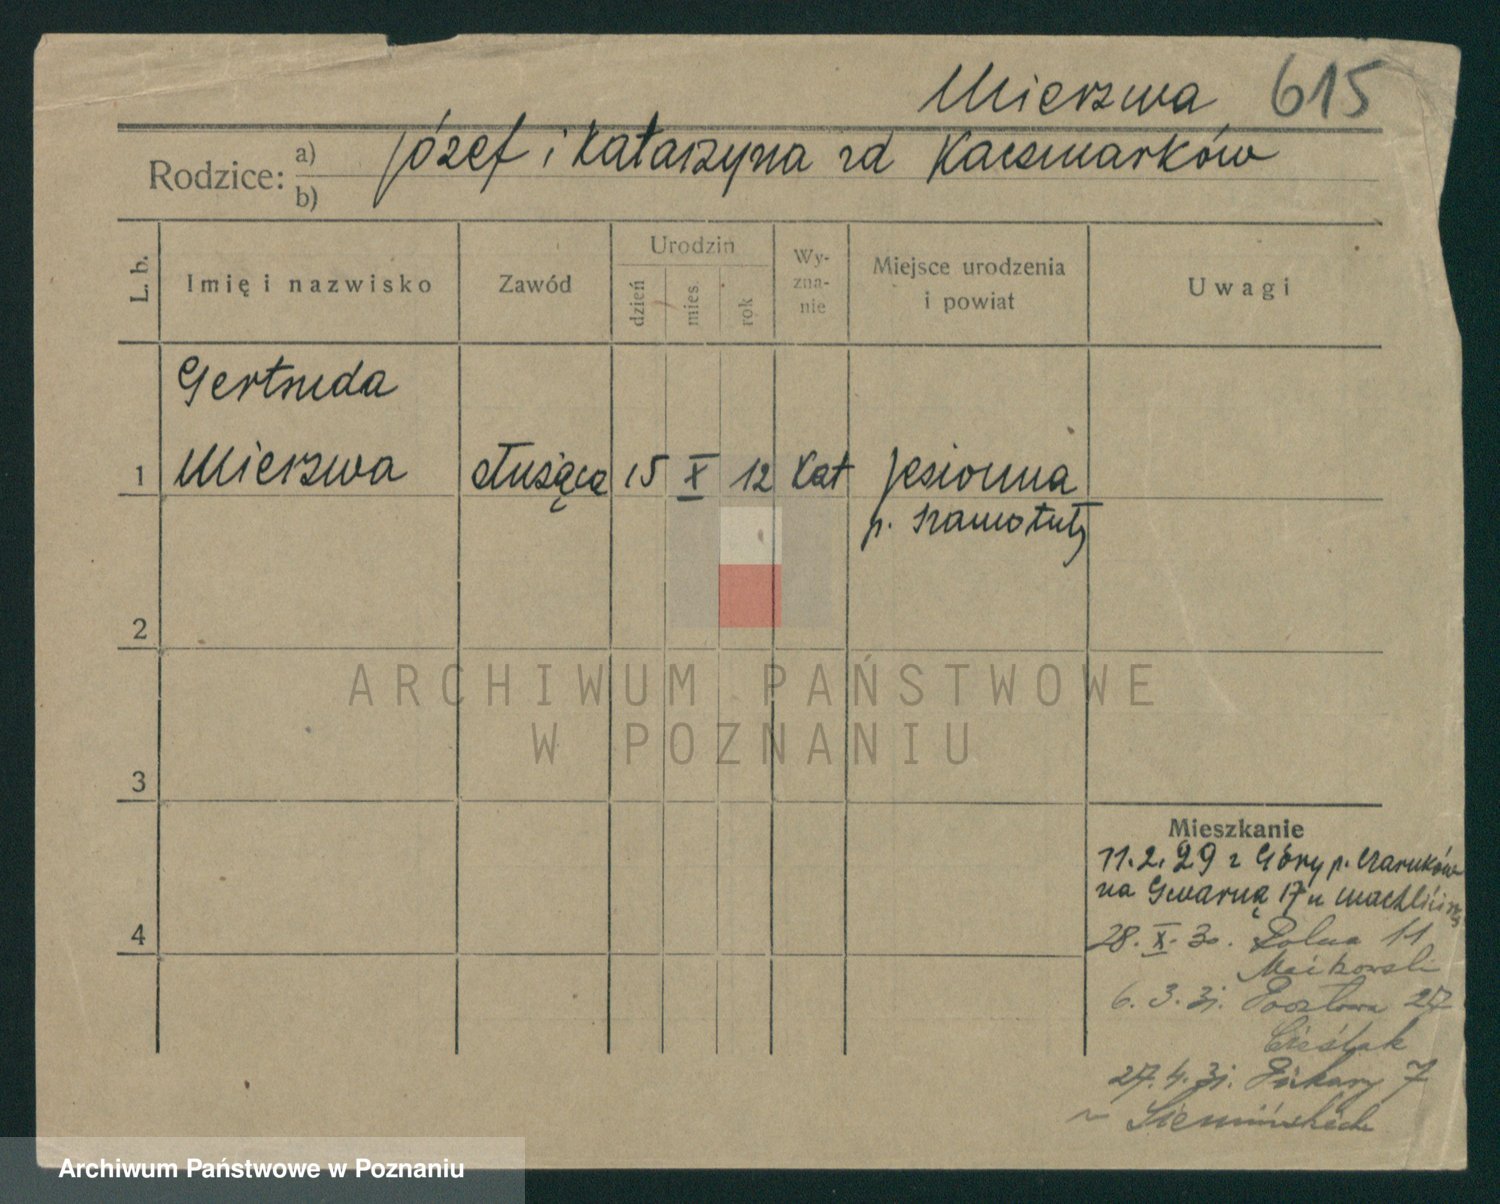 Mierzwa 615
Rodzice: a) Józef i Katarzyna zd Kaczmarków
b)
L. b. Imię i nazwisko Zawód Urodzin dzień mies. rok Wy-zna-nie Miejsce urodzenia i powiat Uwagi
Gertruda
1 Mierzwa służąca 15 X 12 Kat Jesionna
p. Szamotuły
2
3
4
Mieszkanie
11.2.29 z Góry p. Czarnków
na Gwarną 17 u
28.X.30. Polna 11
6.3.31. Pocztowa 27
Cieślak
27.4.31. Piekary 7
ARCHIWUM PAŃSTWOWE
W POZNANIU
Archiwum Państwowe w Poznaniu